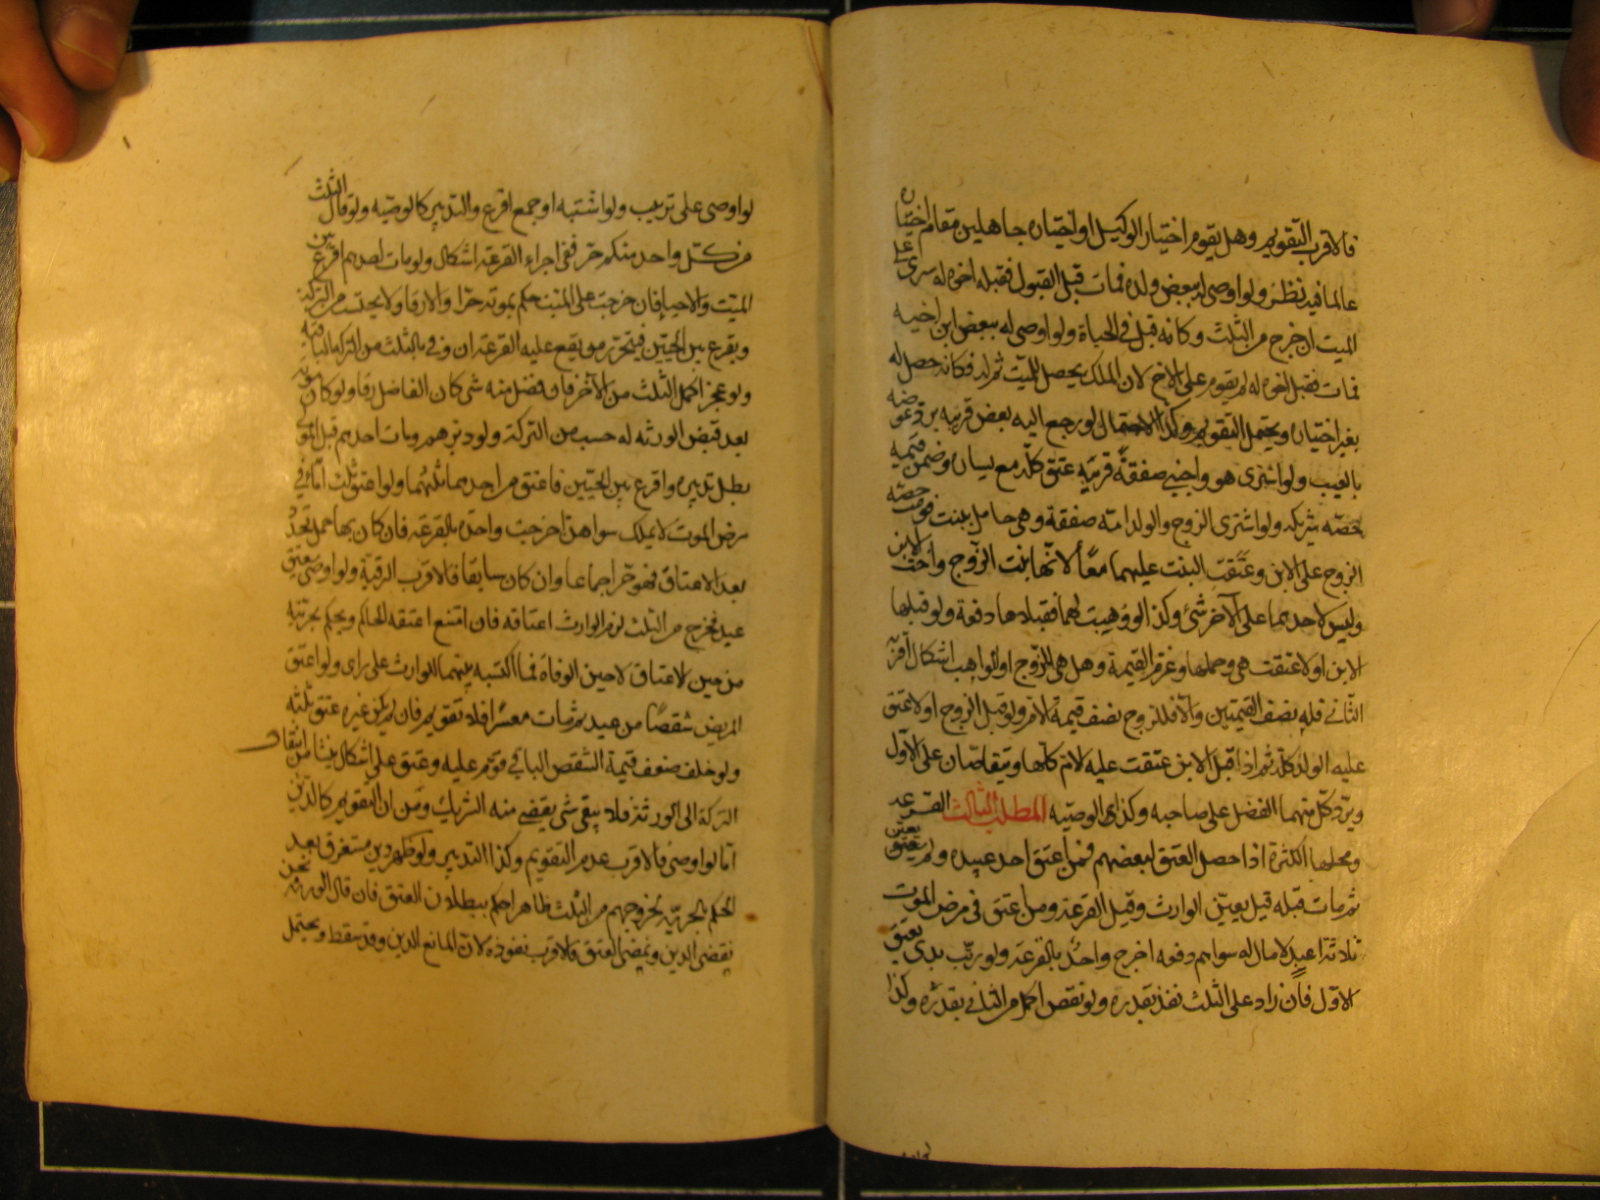 فالاقرب التقويم وهل يقوم اختيار الوكيل او اختياره جاهلين مقام اختياره
عالما فيه نظر ولو اوصى له ببعض ولده فمات قبل القبول فقبله اخوه له سرى على
الميت ان خرج من الثلث وكانه قبل في الحياة ولو اوصى له ببعض ابن اخيه
فمات فقبله اخوه له لم يقوم على الاخ لان الملك يحصل للميت ثم له فكانه حصل له
بغير اختياره ويحتمل التقويم وكذا الاحتمال لو رجع اليه بعض قريبه برد عوضه
بالعيب ولو اشترى هو واجنبي صفقة قريبه عتق كله مع يساره وضمن قيمة
حصه شريكه ولو اشترى الزوج والولد امته صفقة وهي حامل ببنت قومت حصه
الزوج على الابن وعتقت البنت عليهما معا لانها بنت الزوج واخت الابن
وليس لاحدهما على الآخر شئ وكذا لو وهبت لهما فقبلاها دفعة ولو قبلها
الابن اولا عتقت هي وحملها وغرم القيمة وهل هي للزوج او الواهب اشكال اقربه
الثاني فله نصف القيمتين والا فللزوج نصف قيمة الام ولو قبل الزوج اولا عتق
عليه الولد كله ثم اذا قبل الابن عتقت عليه الام كلها ويتقاصان على الاول
ويرد كل منهما الفضل على صاحبه وكذا في الوصيه المطلب الثالث القرعه
ومحلها الكثرة اذا حصل العتق لبعضهم فمن اعتق احد عبيده ولم يعين
ثم مات قبله قيل يعين الوارث وقيل القرعة ومن اعتق في مرض الموت
ثلاثة اعبد لا مال له سواهم دفعه اخرج واحد بالقرعة ولو رتب بدى بعتق
الاول فان زاد على الثلث نفذ بقدره ولو نقص اكمل من الثاني بقدره وكذا
لو اوصى على ترتيب ولو اشتبه او جمع اقرع والتدبير كالوصيه ولو قال الثلث
من كل واحد منكم حر ففي اجراء القرعة اشكال ولو مات احدهم اقرع بين
الميت والاحياء فان خرجت على الميت حكم بموته حرا والا رقا ولا يحتسب من التركة
ويقرع بين الحيين فيتحرر من يقع عليه القرعة ان وفى بالثلث من التركة الباقية
ولو عجز اكمل الثلث من الآخر فان فضل منه شى كان الفاضل رقا ولو كان موته
بعد قبض الورثه له حسب من التركة ولو دبرهم ومات احدهم قبل المولى
بطل تدبيره واقرع بين الحيين فاعتق من احدهما ثلثهما ولو اعتق ثلث اماء في
مرض الموت لا يملك سواهن اخرجت واحدة بالقرعه فان كان بها حمل تجدد
بعد الاعتاق فهو حر اجماعا وان كان سابقا فالاقرب الرقية ولو اوصى بعتق
عبد فخرج من الثلث لزم الوارث اعتاقه فان امتنع اعتقه الحاكم ويحكم بحريته
من حين الاعتاق لا حين الوفاة فما اكتسبه بينهما للوارث على راى ولو اعتق
المريض شقصا من عبد ثم مات معسرا فلا تقويم فان لم يكن غيره عتق ثلثه
ولو خلف ضعف قيمة الشقص الباقي قوم عليه وعتق على اشكال ينشا من انتقال
التركة الى الورثة فلا يبقى شى يقضى منه الشريك ومن ان التقويم كالدين
اما لو اوصى فالاقرب عدم التقويم وكذا التدبير ولو ظهر دين مستغرق بعد
الحكم بالحرية لخروجهم من الثلث ظاهرا حكم ببطلان العتق فان قال الورثة نحن
نقضى الدين ونمضى العتق فالاقرب نفوذه لان المانع الدين وقد سقط ويحتمل